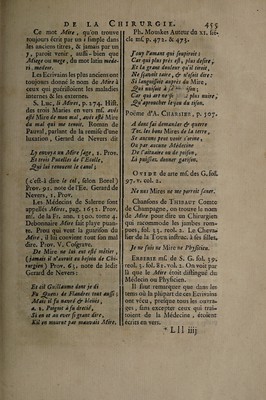 DE LA CHIRURGIE. 455
Ce mot Mire, qu'on trouve
toujours écrit par un i simple dans
les anciens titres, & jamais par un
y, paroît venir, aussi-bien que
Miege ou mege, du mot latin mede-
ri. medeor.
Les Ecrivains les plus anciens ont
toujours donné le nom de Mire à
ceux qui guérissoient les maladies
internes & les externes.
S. Luc, & Miret, p. 274. Hist.
des trois Maries en vers ms. avés
esté Mire de mon mal, avés esté Mire
du mal qui me tenoit. Roman de
Pauval, parlant de la remise d'une
luxation, Gerard de Nevers dit
Ly envoye un Mire sage, 1. Prov.
Et trois Pucelles de l'Escolle,
Qui lui renouent le canol;
(c'est-à dire le col, selon Borel)
Prov. 91. note de l'Et. Gerard de
Nevers, 2. Prov.
Les Médecins de Salerne sont
appellés Mires, pag. 1652. Prov.
ms. de la Fr. ann. 1300. tome 4.
Debonnaire Mire fait playe puan-
te. Prou qui veut la guarison du
Mire, il lui convient tout son mal
dire. Prov. V. Colgrave.
De Mire ne lui eut esté métier,
(jamais il n'auroit eu besoin de Chi-
rurgien) Prov. 63. note de ledit
Gerard de Nevers:
Et cil Guillaume dont je di
Fu Quens de Flandres tout aussi;
Mais il fu navré & blecié,
a. 2. Poignt à sa drecié,
Si en ot au cuer si grant dire,
Kil en mourut par mauvais Mire.
Ph. Mouskes Auteur du XI. sié-
cle ms. p. 472. & 473.
J'ouy l'amant qui souspiroit:
Car qui plus près est, plus desire,
Et la grant douleur qu'il tiroit,
Ne sçavoit taire, & n'osoit dire:
Si languissoit auprès du Mire,
Qu'aproucher le jeu du tison.
Poëme d'A. CHARTIER, p. 307.
A dont fai demander & querre
Toz les bons Mires de la terre,
Se aucuns peut venir s'arme,
Ou par aucuns Médecine
De l'altraire ou de poison,
Li puissent donner garison.
OVIDE de arte ms. des G. fol.
97. v. col. 2.
Ne nus Mires ne me porroit saner.
Chansons de THIBAUT Comte
de Champagne, on trouve le nom
de Mire pour dire un Chirurgien
qui raccommode les jambes rom-
pues, fol. 33. rect. 2. Le Cheva-
lier de la Tour instruc. à ses filles.
Je ne suis ne Mire ne Physicien.
ERBERIE ms. de S. G. fol. 59.
rect. 3. fol. 81. rect. 2. On voit par
là que le Mire étoit distingué du
Médecin ou Physicien.
Il faut remarquer que dans les
tems où la plûpart de ces Ecrivains
ont vécu, presque tous les ouvra-
ges, sans excepter ceux qui trai-
toient de la Médecine, étoient
écrits en vers.
* Lll iiij